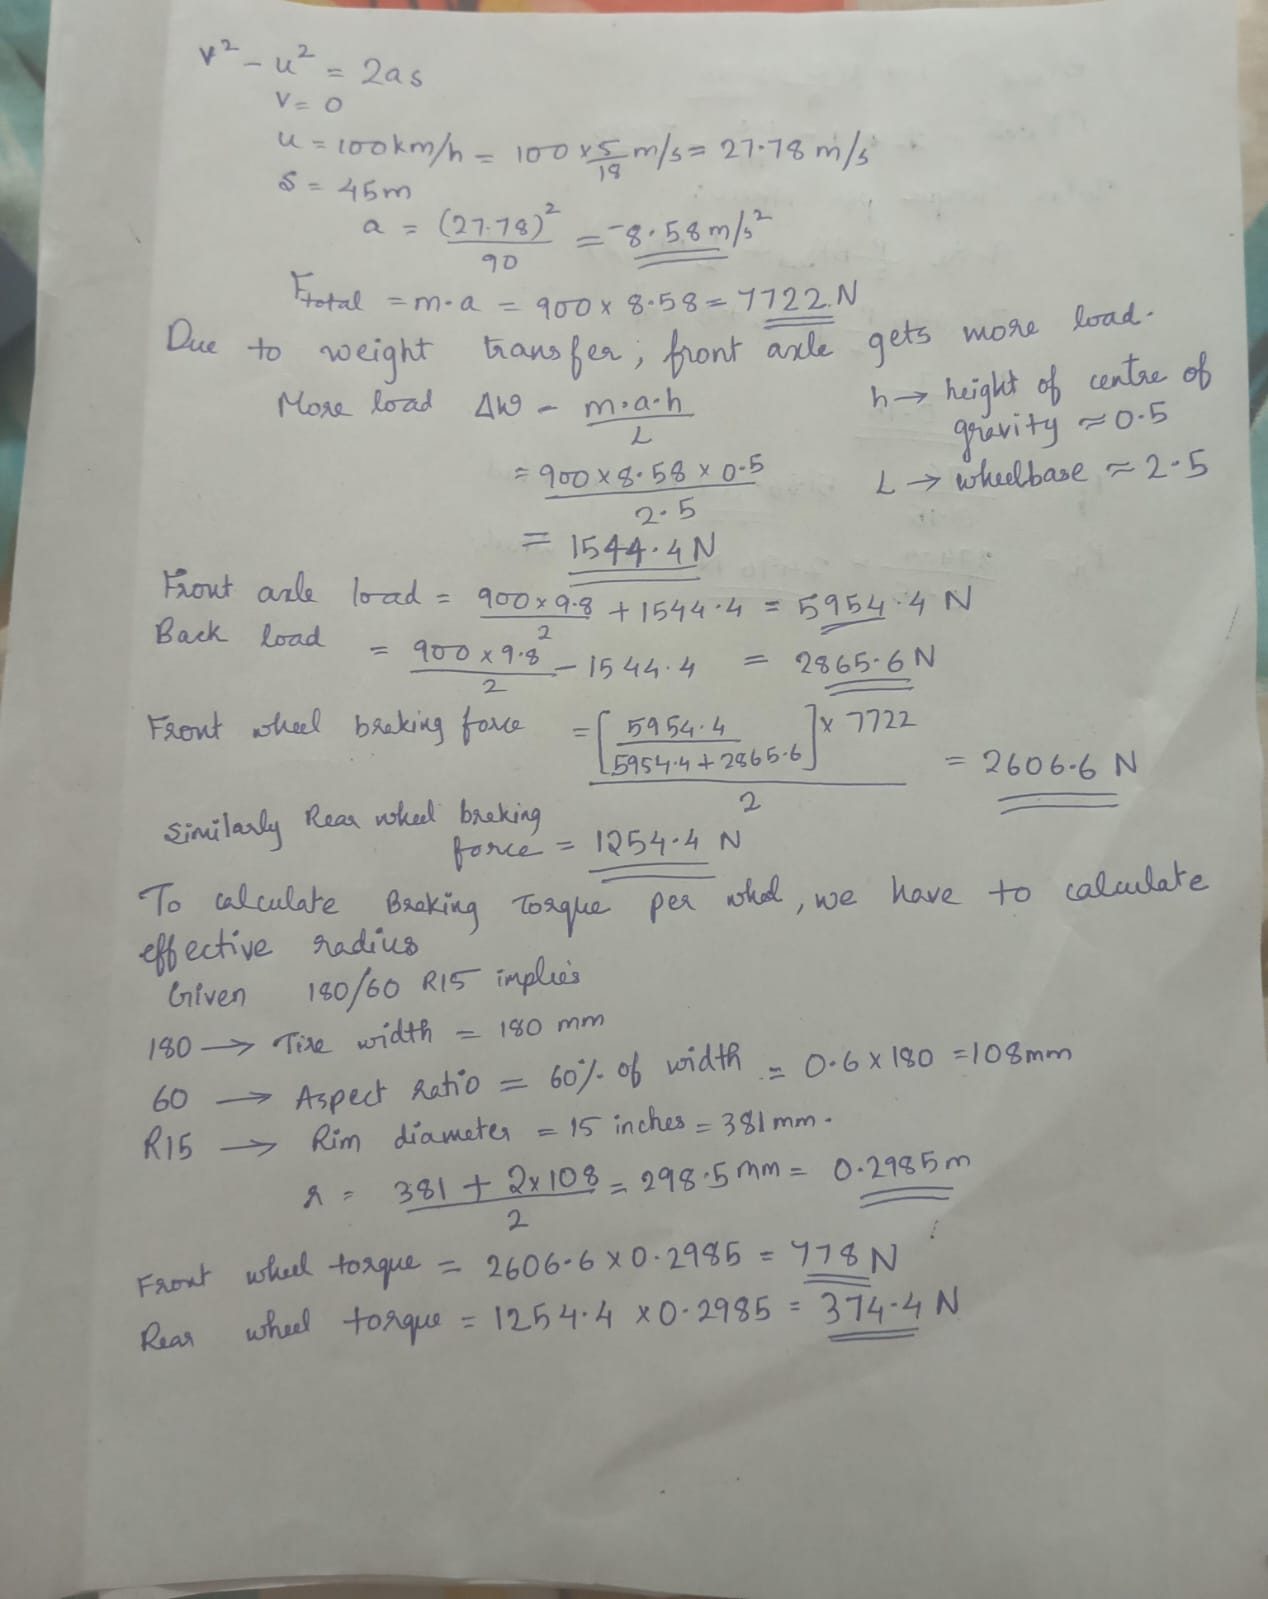 v² - u² = 2as
v = 0
u = 100km/h = 100 x 5/18 m/s = 27.78 m/s
S = 45m
a = (27.78)²/90 = -8.58 m/s²
Ftotal = m.a = 900 x 8.58 = 7722 N
Due to weight transfer, front axle gets more load.
More load ΔW = m.a.h/L
h → height of centre of gravity ≈ 0.5
= 900 x 8.58 x 0.5/2.5
L → wheelbase ≈ 2.5
= 1544.4 N
Front axle load = 900 x 9.8/2 + 1544.4 = 5954.4 N
Back load = 900 x 9.8/2 - 1544.4 = 2865.6 N
Front wheel breking force = [5954.4/5954.4 + 2865.6] x 7722/2 = 2606.6 N
Similarly Rear wheel breking
force = 1254.4 N
To calculate Breking Torque per whel, we have to calculate
effective radius
Given 180/60 R15 implies
180 → Tire width = 180 mm
60 → Aspect ratio = 60% of width = 0.6 x 180 = 108mm
R15 → Rim diameter = 15 inches = 381 mm.
r = 381 + 2x108/2 = 298.5 mm = 0.2985 m
Front wheel torque = 2606.6 x 0.2985 = 778 N
Rear wheel torque = 1254.4 x 0.2985 = 374.4 N